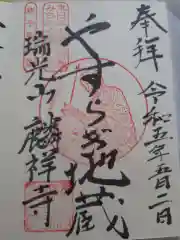 奉拝
令和五年五月二日
やすらぎ地蔵
瑞光山麟祥寺